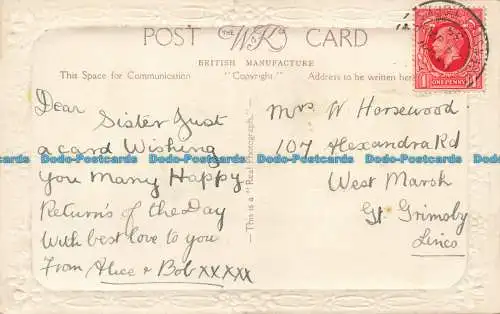 POST THE W & K CARD
BRITISH MANUFACTURE
This Space for Communication "Copyright." Address to be written here
ONE PENNY
Dear
Sister Just
a card Wishing
You Many Happy
Return's of the Day
With best love to you
From Alice & Bob XXXXX
This is a "Real Photograph."
Mrs W Horsewood
107 Alexandra Rd
West Marsh
Gt. Grimsby
Lincs
Dodo-Postcards Dodo-Postcards Dodo-Postcards Dodo-Postcards Dodo-Postcards
Dodo-Postcards Dodo-Postcards Dodo-Postcards Dodo-Postcards Dodo-Postcards